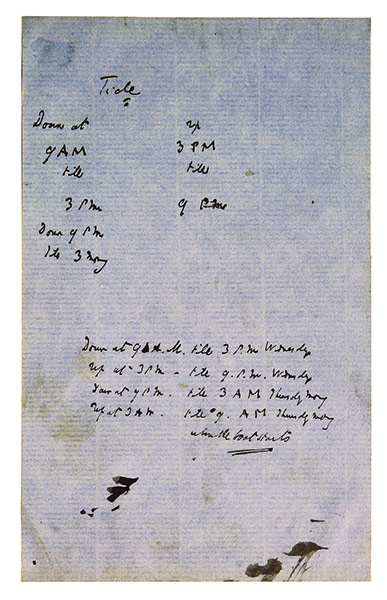 Tide
Down at up
9 AM 3 PM
till till
3 P.m 9 P.m
Down 9 P.m
till 3 morg
Down at 9 A.M. till 3 P.m Wednesdy
up at 3 P.M - till 9. P.m. Wednsdy
Down at 9 P.m. till 3 AM Thursdy morg
up at 3 A.M. till 9. AM Thursdy morng
when the boat starts